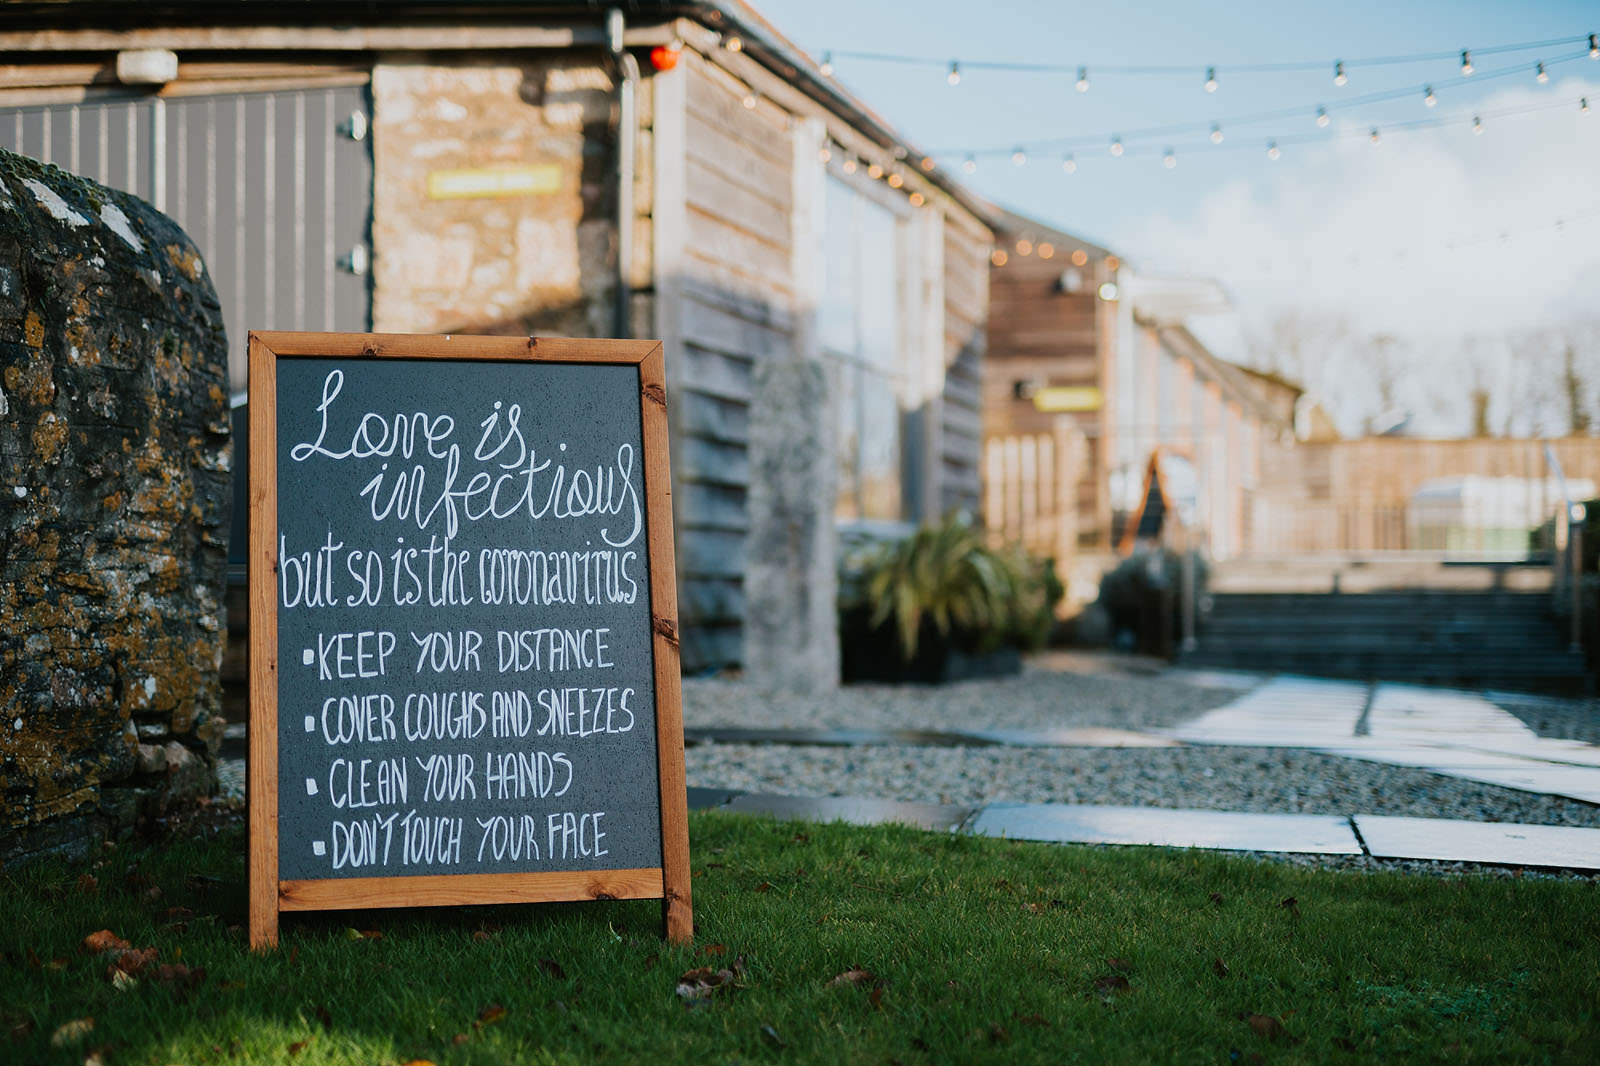 Love is
infectious
but so is the coronavirus
• KEEP YOUR DISTANCE
• COVER COUGHS AND SNEEZES
• CLEAN YOUR HANDS
• DON'T TOUCH YOUR FACE